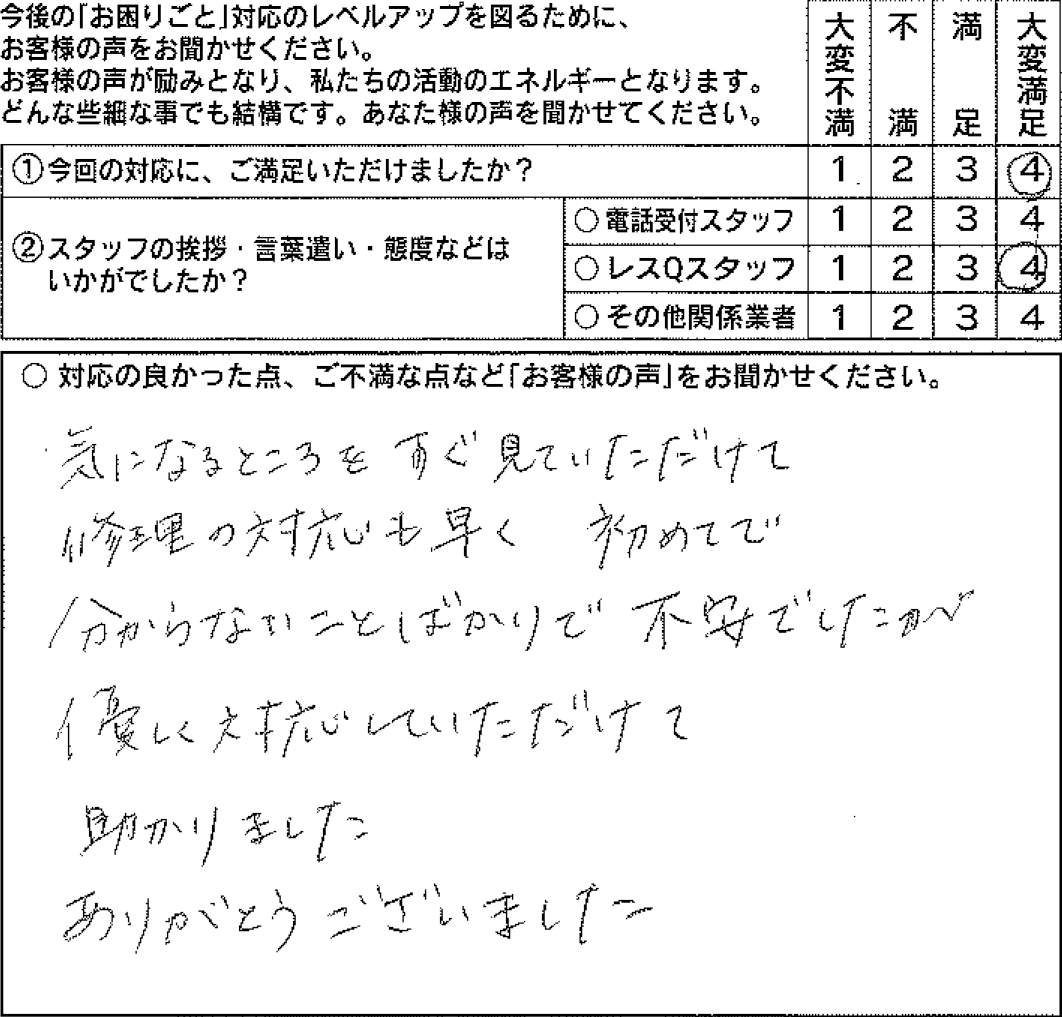 今後の「お困りごと」対応のレベルアップを図るために、
お客様の声をお聞かせください。
お客様の声が励みとなり、私たちの活動のエネルギーとなります。
どんな些細な事でも結構です。あなた様の声を聞かせてください。
大変不満 不満 満足 大変満足
①今回の対応に、ご満足いただけましたか？ 1 2 3 4
②スタッフの挨拶・言葉遣い・態度などは
いかがでしたか？
○電話受付スタッフ 1 2 3 4
○レスQスタッフ 1 2 3 4
○その他関係業者 1 2 3 4
○ 対応の良かった点、ご不満な点など「お客様の声」をお聞かせください。
気になるところを すぐ見ていただけて
修理の対応も早く 初めてで
分からないことばかりで 不安でしたが
優しく対応していただけて
助かりました
ありがとうございました